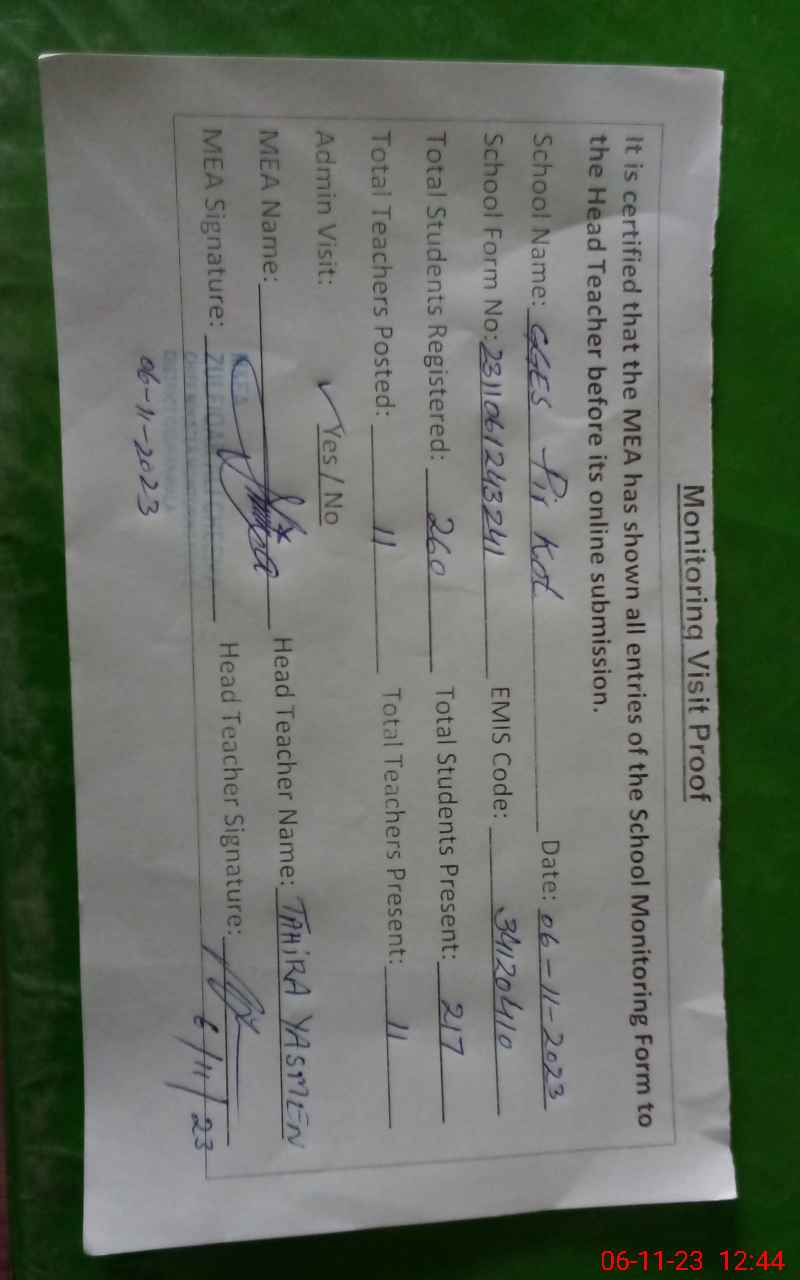 Monitoring Visit Proof
It is certified that the MEA has shown all entries of the School Monitoring Form to
the Head Teacher before its online submission.
School Name: GGES Pir Kot Date: 06-11-2023
School Form No: 2311061243241 EMIS Code: 34120410
Total Students Registered: 260 Total Students Present: 217
Total Teachers Posted: 11 Total Teachers Present: 11
Admin Visit: ✓ Yes / No
MEA Name: Head Teacher Name: TAHIRA YASMEEN
MEA Signature: Head Teacher Signature:
06-11-2023 6/11/23
06-11-23 12:44